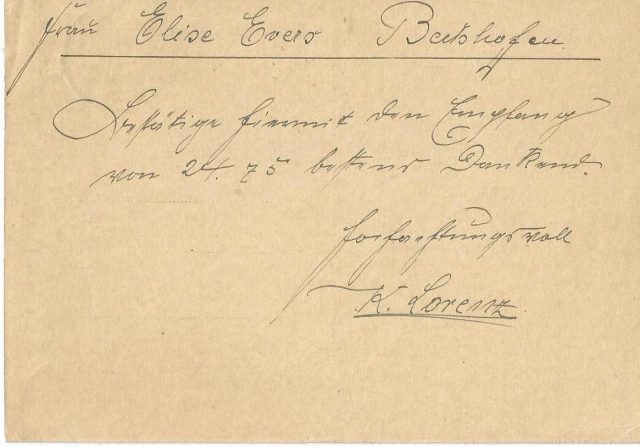 Frau Elise Evers Beckshofen.
Bestätige hiermit den Empfang
von 24.75 bestens Dankend.
Hochachtungsvoll
K. Lorenz